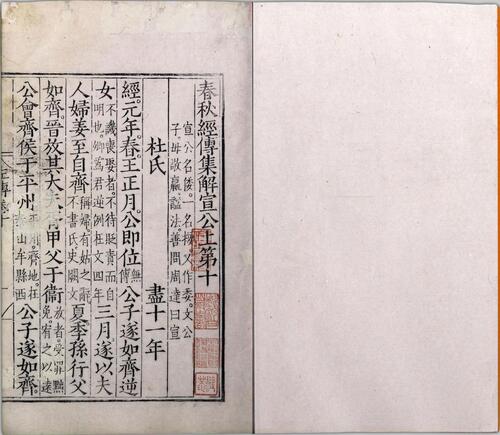 春秋經傳集解宣公上第十
宣公名倭。一名接。又作委。文公
子。母敬嬴。謚法。善問周達曰宣
杜氏 盡十一年
經。元年。春。王正月。公即位無傳公子遂如齊逆
女不譏喪娶者。不待貶責而自明也。卿爲君逆例在文四年三月。遂以夫
人婦姜至自齊稱婦。有姑之辭。不書氏。史闕文夏。季孫行父
如齊。晉放其大夫胥甲父于衞放者。受罪黜免。宥之以遠
公會齊侯于平州齊地。在山牟縣西公子遂如齊。